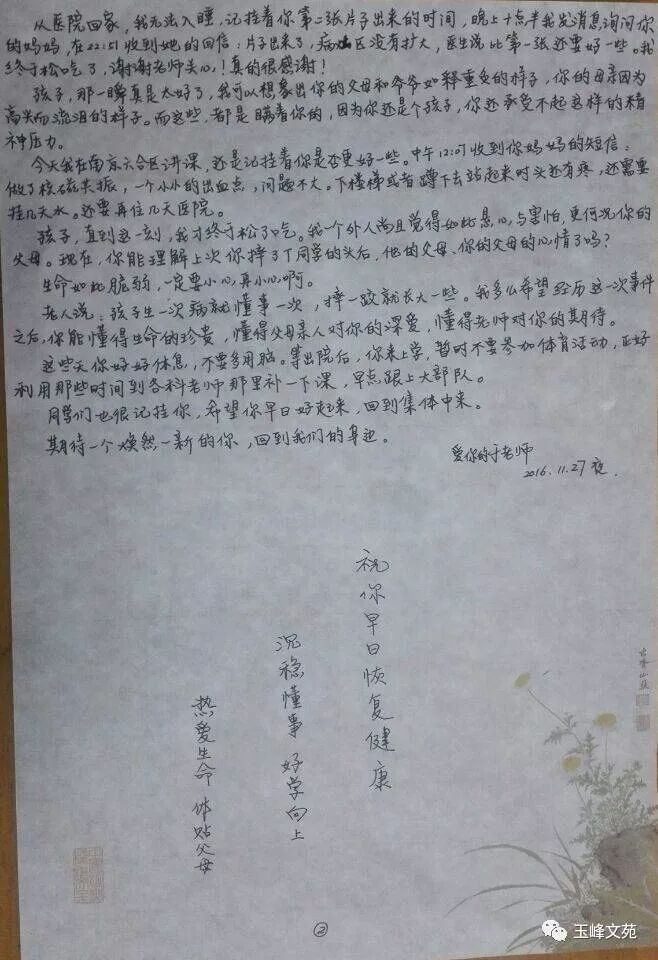 从医院回家，我无法入睡，记挂着你第二张片子出来的时间，晚上十点半我发消息询问你
的妈妈，在22:51收到她的回信：片子出来了，病灶区没有扩大，医生说比第一张还要好一些。我
终于松吃了，谢谢老师关心！真的很感谢！
孩子，那一瞬真是太好了，我可以想象出你的父母和爷爷如释重负的样子，你的母亲因为
高兴而流泪的样子。而这些，都是瞒着你的，因为你还是个孩子，你还承受不起这样的精
神压力。
今天我在南京六合区讲课，还是记挂着你是否更好一些。中午12:01收到你妈妈的短信：
做了核磁共振，一个小小的出血点，问题不大。下楼梯或者蹲下去站起来时头还有疼，还需要
挂几天水。还要再住几天医院。
孩子，直到这一刻，我才终于松了口气。我一个外人尚且觉得如此忧心与害怕，更何况你的
父母。现在，你能理解上次你摔了丁同学的头后，他的父母、你的父母的心情了吗？
生命如此脆弱，一定要小心，再小心啊。
老人说：孩子生一次病就懂事一次，摔一跤就长大一些。我多么希望经历这一次事件
之后，你能懂得生命的珍贵，懂得父母亲人对你的深爱，懂得老师对你的期待。
这些天你好好休息，不要多用脑。等出院后，你来上学，暂时不要参加体育活动，正好
利用那些时间到各科老师那里补一下课，早点跟上大部队。
同学们也很记挂你，希望你早日好起来，回到集体中来。
期待一个焕然一新的你，回到我们的身边。
爱你的于老师
2016.11.27夜.
祝你早日恢复健康
沉稳懂事 好学向上
热爱生命 体贴父母
②
玉峰文苑